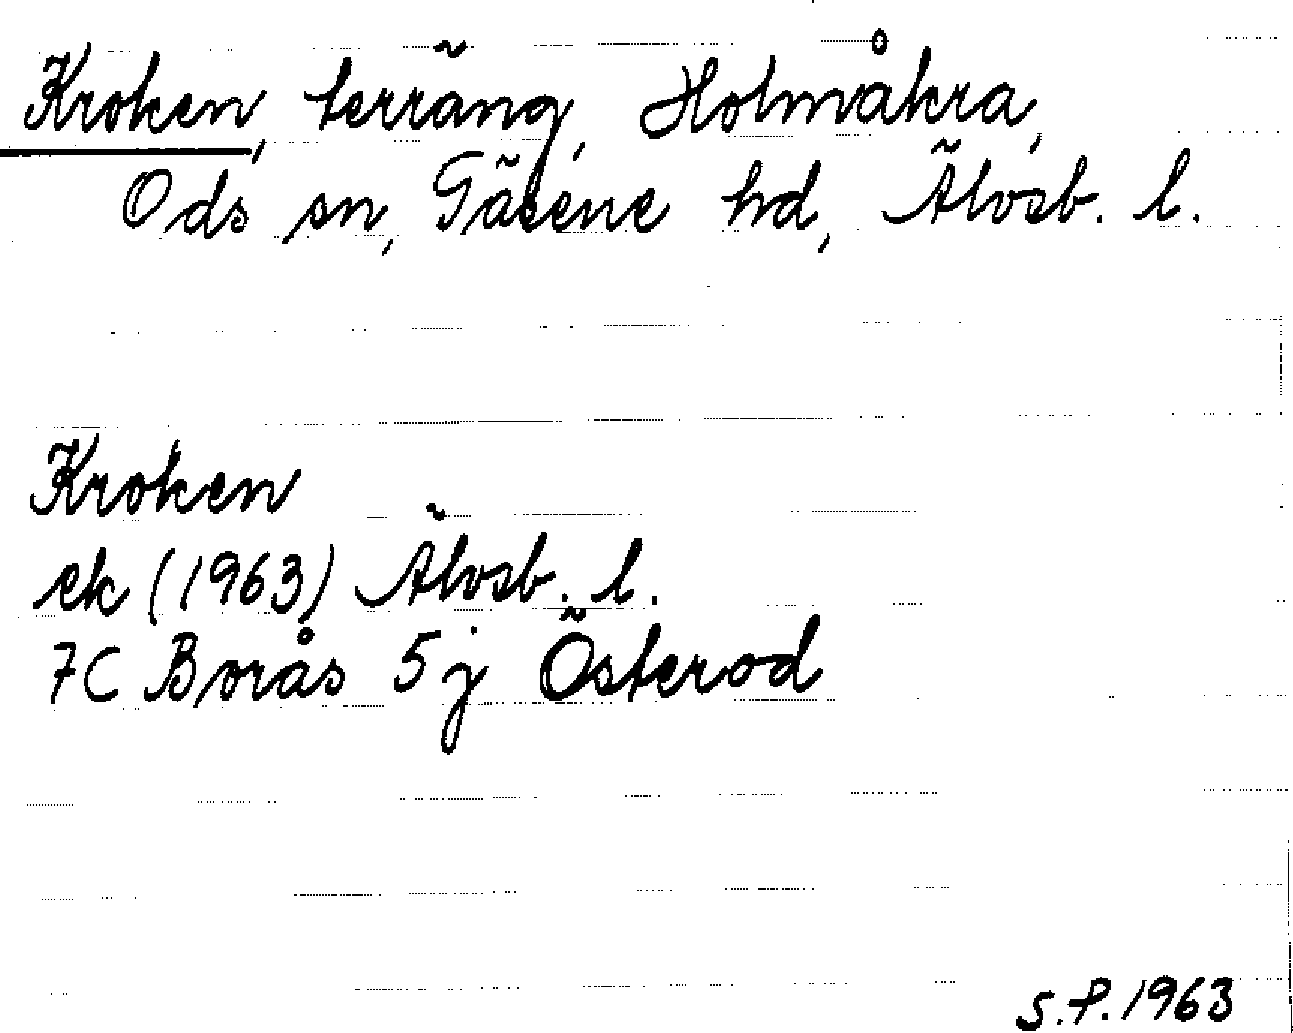 Kroken, terräng, Holmåkra,
Ods sn, Gäsene hd, Älvsb. l.
Kroken
ek (1963) Älvsb. l.
7C Borås 5j Österod
S.P. 1963